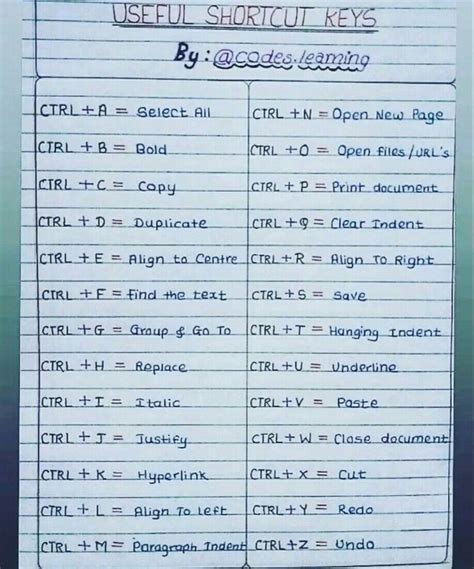 USEFUL SHORTCUT KEYS
By : @codes.learning
CTRL + A = Select All
CTRL + B = Bold
CTRL + C = Copy
CTRL + D = Duplicate
CTRL + E = Align to Centre
CTRL + F = find the text
CTRL + G = Group & Go To
CTRL + H = Replace
CTRL + I = Italic
CTRL + J = Justify
CTRL + K = Hyperlink
CTRL + L = Align To Left
CTRL + M = Paragraph Indent
CTRL + N = Open New Page
CTRL + O = Open files/URL's
CTRL + P = Print document
CTRL + Q = Clear Indent
CTRL + R = Align To Right
CTRL + S = Save
CTRL + T = Hanging Indent
CTRL + U = Underline
CTRL + V = Paste
CTRL + W = Close document
CTRL + X = Cut
CTRL + Y = Redo
CTRL + Z = Undo